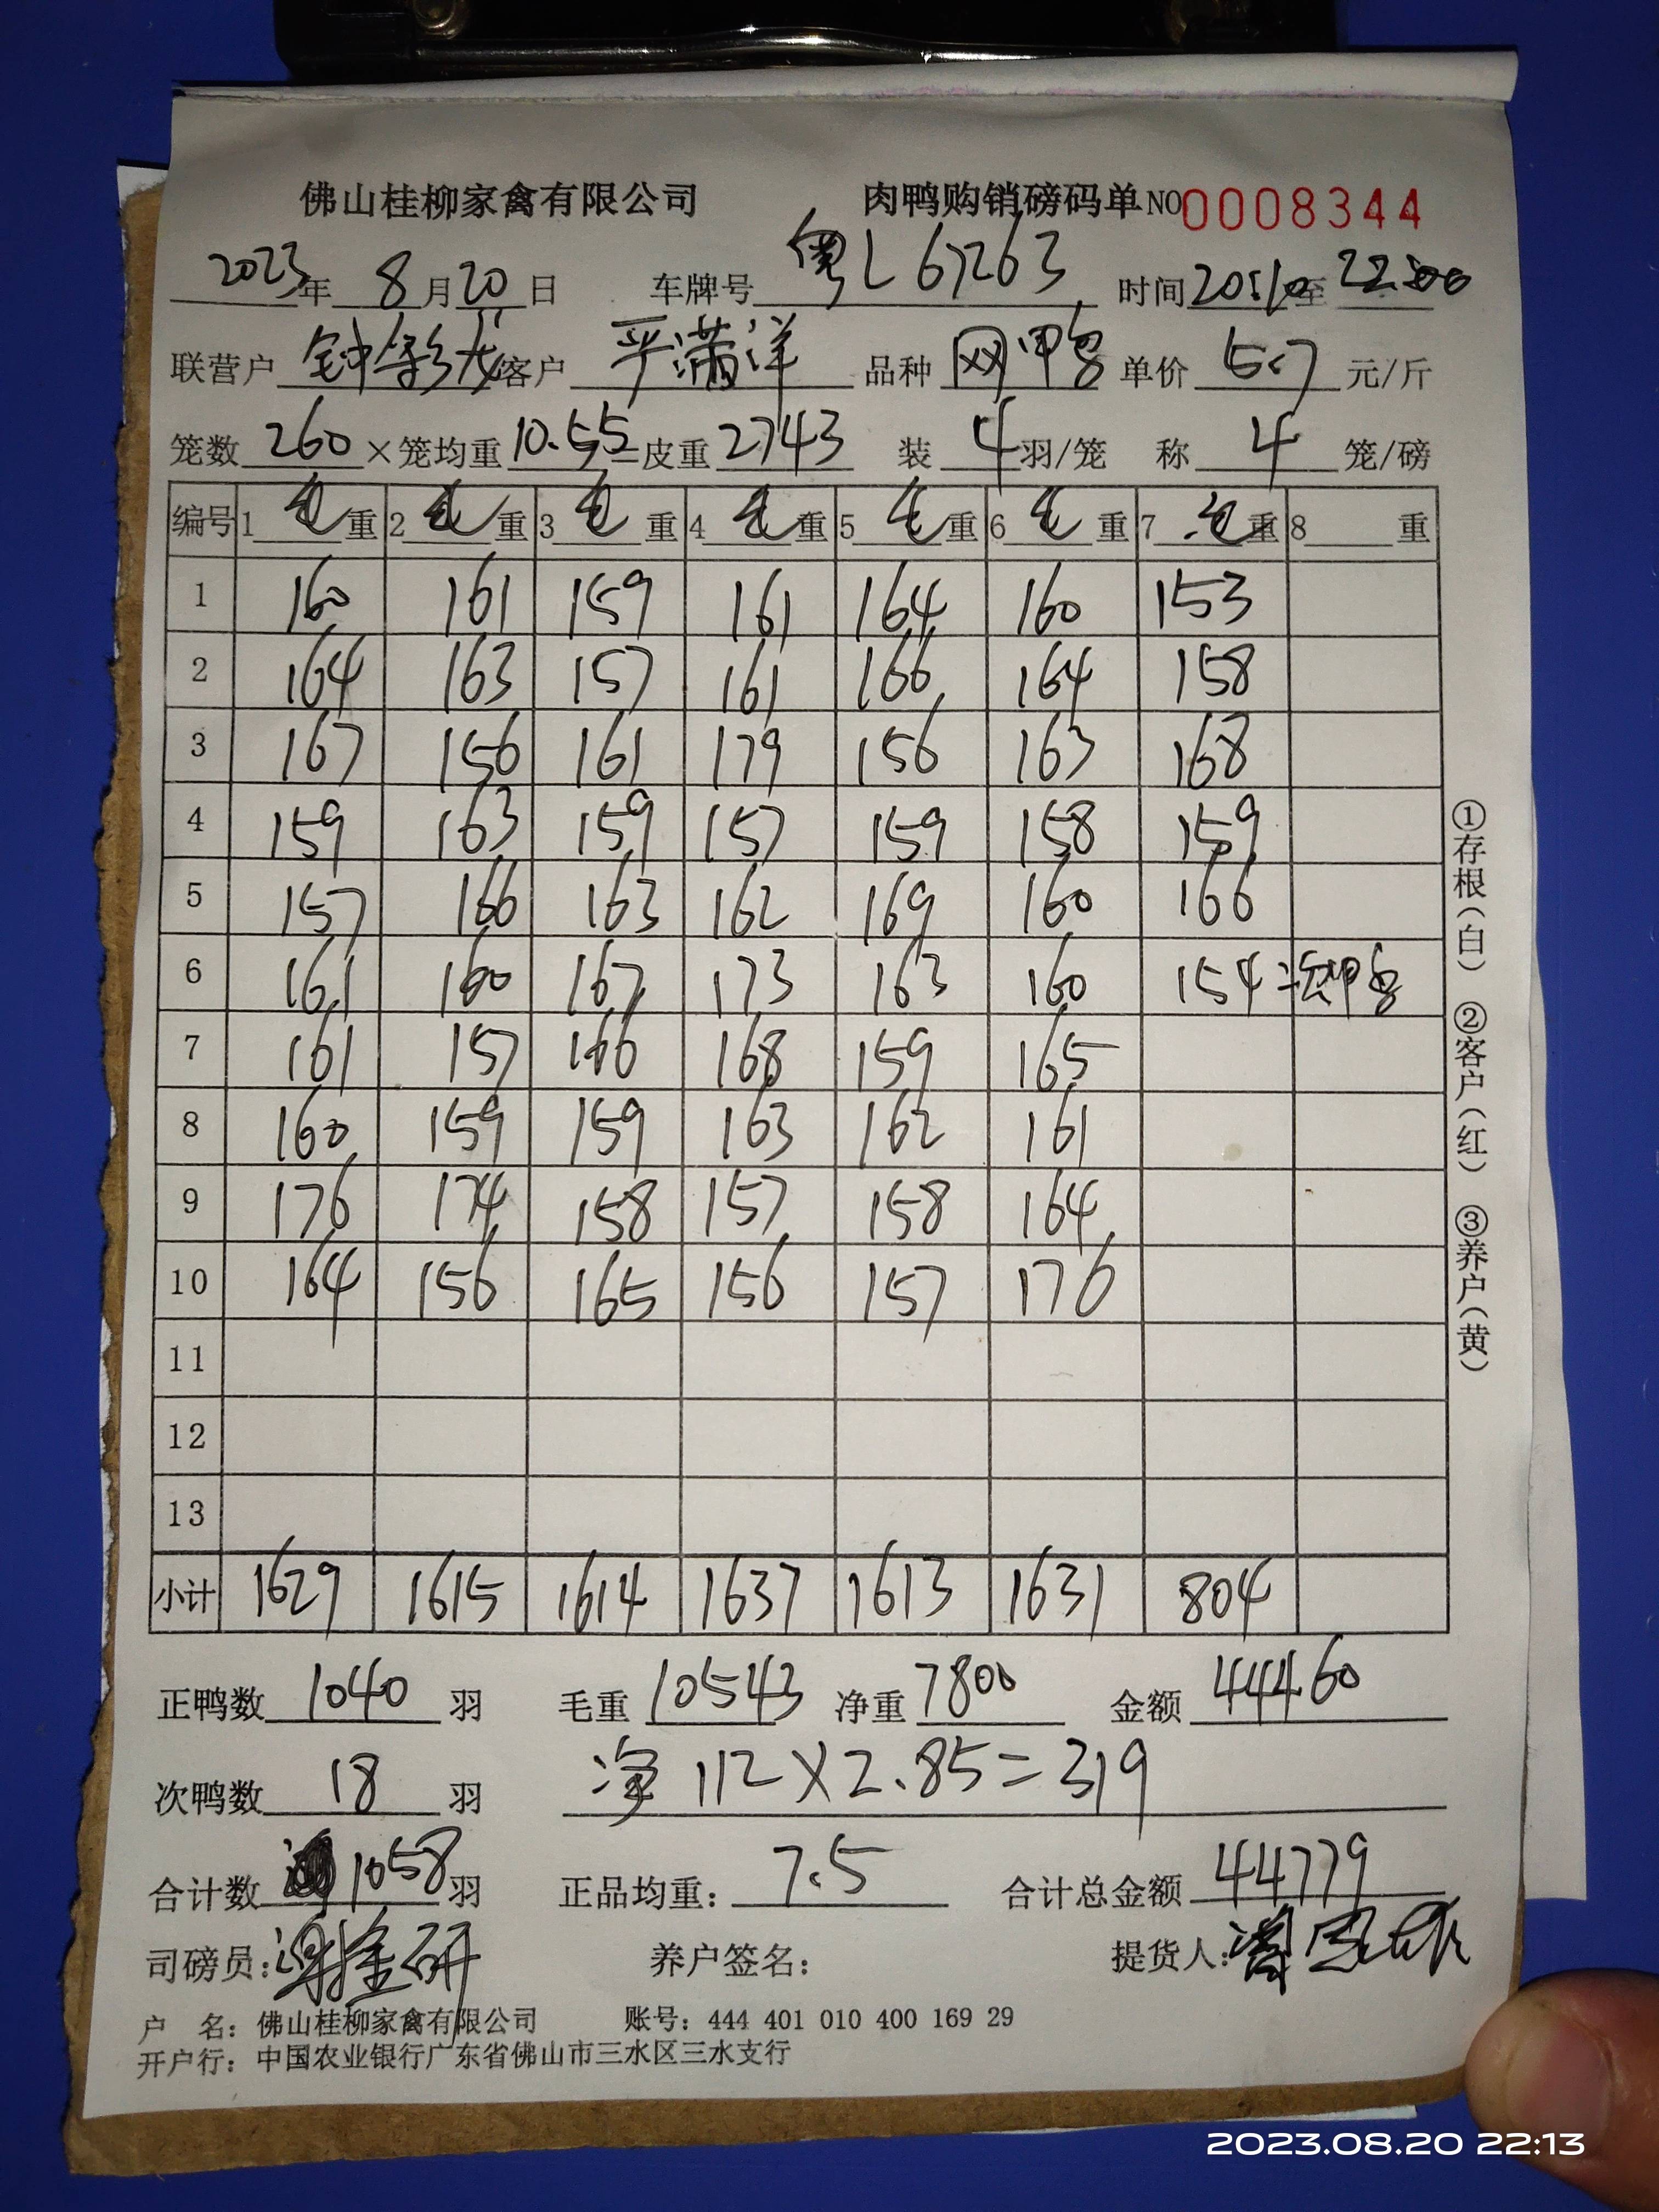 佛山桂柳家禽有限公司 肉鸭购销磅码单 NO 0008344
2023年 8月20日 车牌号 粤L67263 时间 20:10至 22:00
联营户 钟彩龙 客户 严满洋 品种 网甲鸟 单价 5.7 元/斤
笼数 260 ×笼均重 10.55 =皮重 2743 装 4 羽/笼 称 4 笼/磅
编号 1 毛 重 2 毛 重 3 毛 重 4 毛 重 5 毛 重 6 毛 重 7 毛 重 8 重
1 160 161 159 161 164 160 153
2 164 163 157 161 166 164 158
3 167 156 161 179 156 163 168
4 159 163 159 157 159 158 159
5 157 166 163 162 169 160 166
6 161 160 167 173 163 160 154 =次甲鸟
7 161 157 166 168 159 165
8 160 159 159 163 162 161
9 176 174 158 157 158 164
10 164 156 165 156 157 176
11
12
13
小计 1629 1615 1614 1637 1613 1631 804
正鸭数 1040 羽 毛重 10543 净重 7800 金额 44460
次鸭数 18 羽 净 112×2.85=319
合计数 1058 羽 正品均重: 7.5 合计总金额 44779
司磅员: 养户签名: 提货人:
户 名: 佛山桂柳家禽有限公司 账号: 444 401 010 400 169 29
开户行: 中国农业银行广东省佛山市三水区三水支行
①存根(白) ②客户(红) ③养户(黄)
2023.08.20 22:13